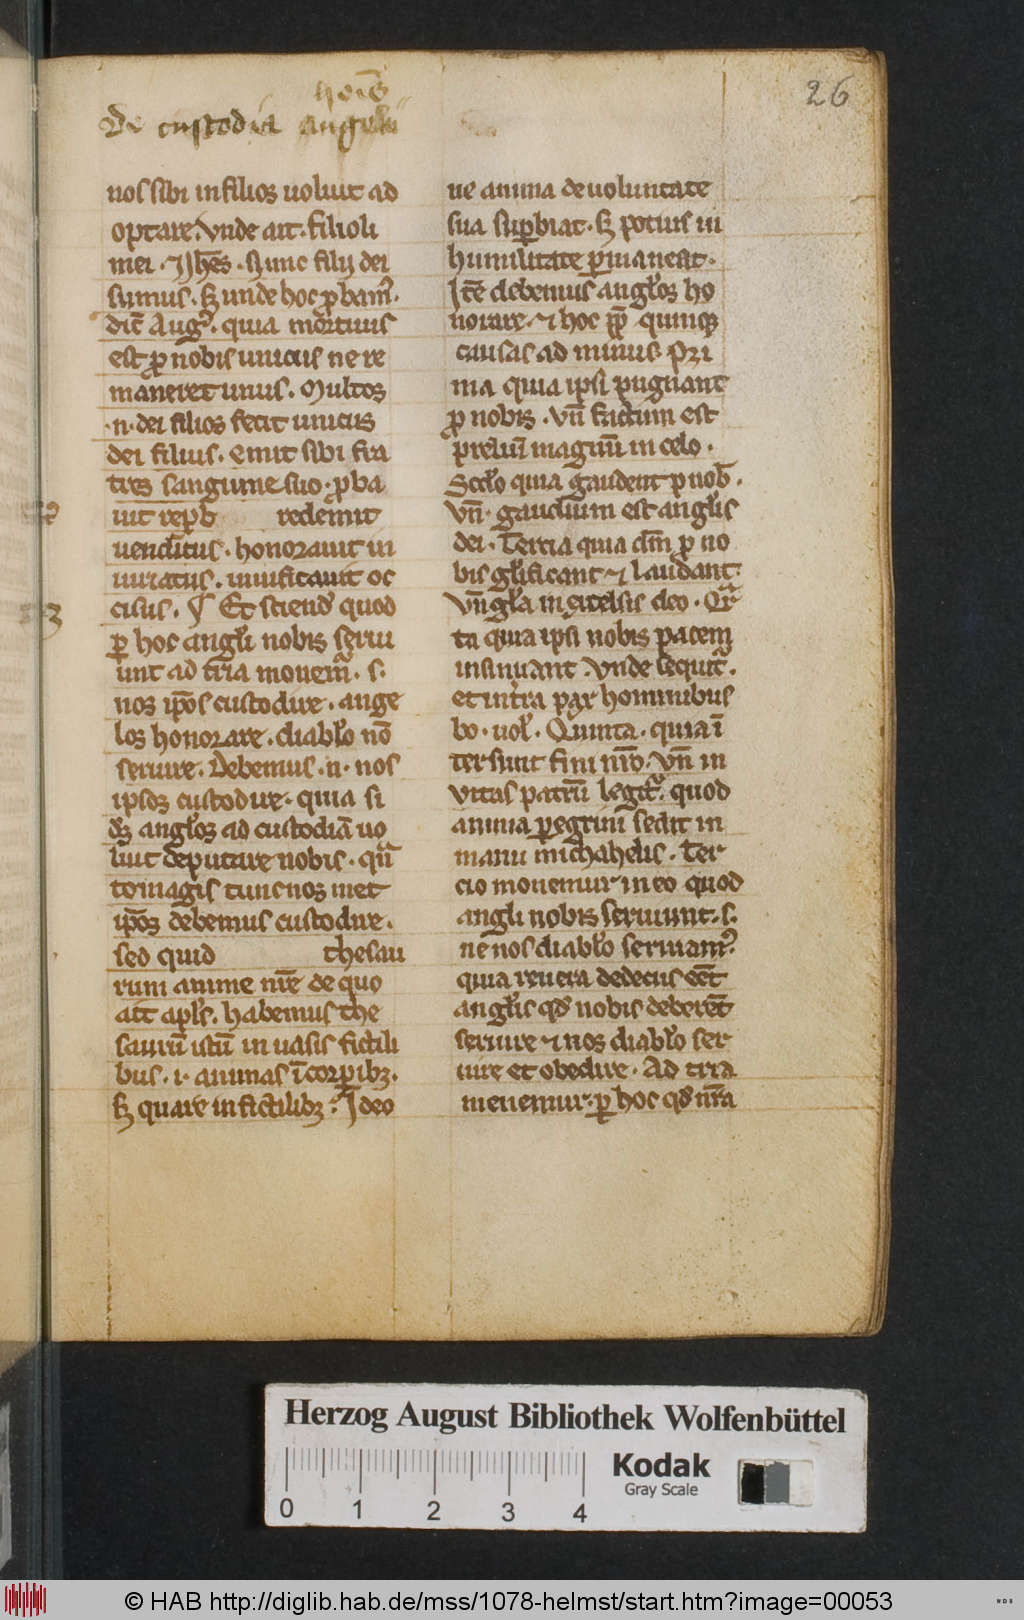 26
hoīs
De custodia angeli
nos sibi in filios uoluit ad
optare. Vnde ait. filioli
mei. ⁊ Jhes. nunc filij dei
sumus. Sꝫ unde hoc ꝓbamꝰ.
dic̄ Augꝰ. quia mortuus
est ꝓ nobis unicus ne re
maneret unus. Multos
.n. dei filios fecit unicus
dei filius. emit sibi fra
tres sanguine suo. ꝓba
uit rep̄ob redemit
uenditus. honorauit in
iuriatus. uiuificauit oc
cisus. ¶ Et sciend̄ quod
ꝑ hoc angl̓i nobis serui
unt ad tria monem̄. s.
nos ip̄os custodire. ange
los honorare. diabl̓o nō
seruire. Debemus .n. nos
ipsos custodire. quia si
dꝫ angl̓os ad custodiā uo
luit deputare nobis. qn̄
to magis tunc nos met
ip̄os debemus custodire.
sed quid thesau
rum anime nr̄e de quo
ait apl̓s. habemus the
saurū istū in uasis fictili
bus. i. animas ī corꝑibꝫ.
Sꝫ quare in fictilibꝫ. Ideo
ue anima de uoluntate
sua suꝑbiat. Sꝫ potius in
humilitate ꝑmaneat.
Itē debemus angl̓os ho
norare. ⁊ hoc ꝓp̄ quinqꝫ
causas ad minus. Pri
ma quia ipsi pugnant
ꝓ nobis. Vn̄ factum est
preliū magnū in celo.
Scd̓o quia gaudent ꝓ nob̄.
Vn̄. gaudium est angl̓is
dei. Tercia quia dm̄ ꝓ no
bis gl̓ificant ⁊ laudant.
Vn̄ gl̓a in excelsis deo. Qr̄
ta quia ipsi nobis pacem
insinuant. Vnde sequit̄.
et in tr̄a pax hominibus
bo. uol̓. Quinta. quia ī
tersunt fini nr̄o. Vn̄ in
vitas patrū legit̄. quod
anima ꝑegrini sedit in
manu michahelis. Ter
cio monemur in eo quod
angl̓i nobis seruiunt. s.
ne nos diabl̓o seruiamꝰ.
quia reuera dedecus eēt
angl̓is qd̓ nobis deberēt
seruire ⁊ nos diabl̓o ser
uire et obedire. Ad tria
meuemur. ꝑ hoc qd̓ nr̄a
Herzog August Bibliothek Wolfenbüttel
Kodak
Gray Scale
0 1 2 3 4
© HAB http://diglib.hab.de/mss/1078-helmst/start.htm?image=00053